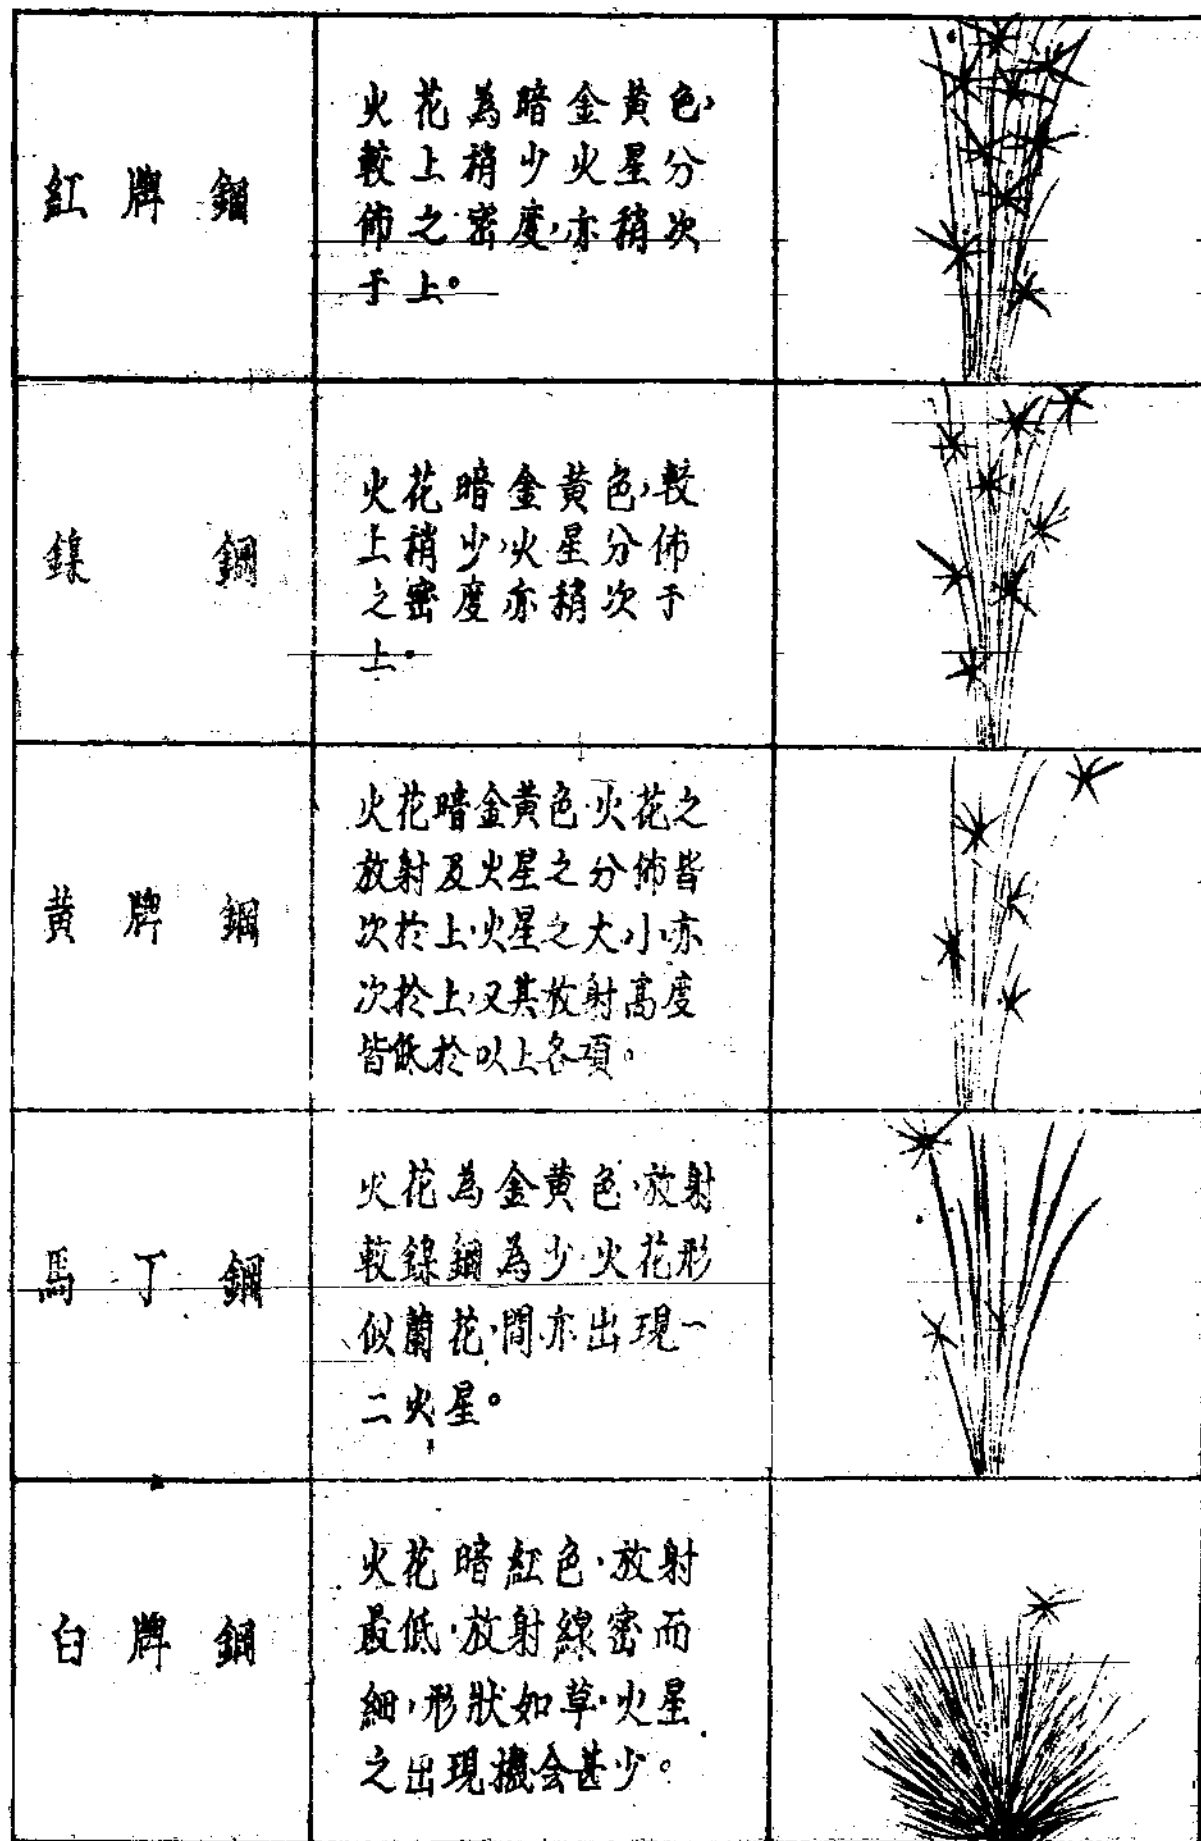 紅牌鋼
火花為暗金黃色,
較上稍少火星分
佈之密度,亦稍次
于上。
鎳鋼
火花暗金黃色,較
上稍少,火星分佈
之密度亦稍次于
上。
黃牌鋼
火花暗金黃色·火花之
放射及火星之分佈皆
次於上,火星之大小亦
次於上,又其放射高度
皆低於以上各項。
馬丁鋼
火花為金黃色·放射
較鎳鋼為少·火花形
似蘭花·間亦出現一
二火星。
白牌鋼
火花暗紅色·放射
最低·放射線密而
細,形狀如草·火星
之出現機会甚少。